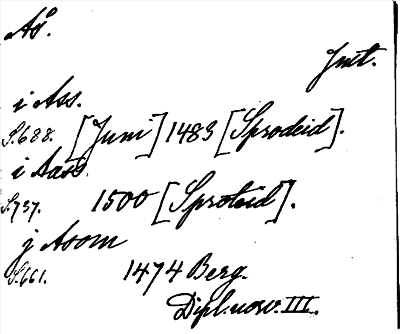 Ås.
Jmt.
i Ass.
S. 688. [Juni] 1483 [Sprodeid].
i Aass
S. 737. 1500 [Sproteid].
j Asom
S. 661. 1474 Berg.
Dipl. norv. III.